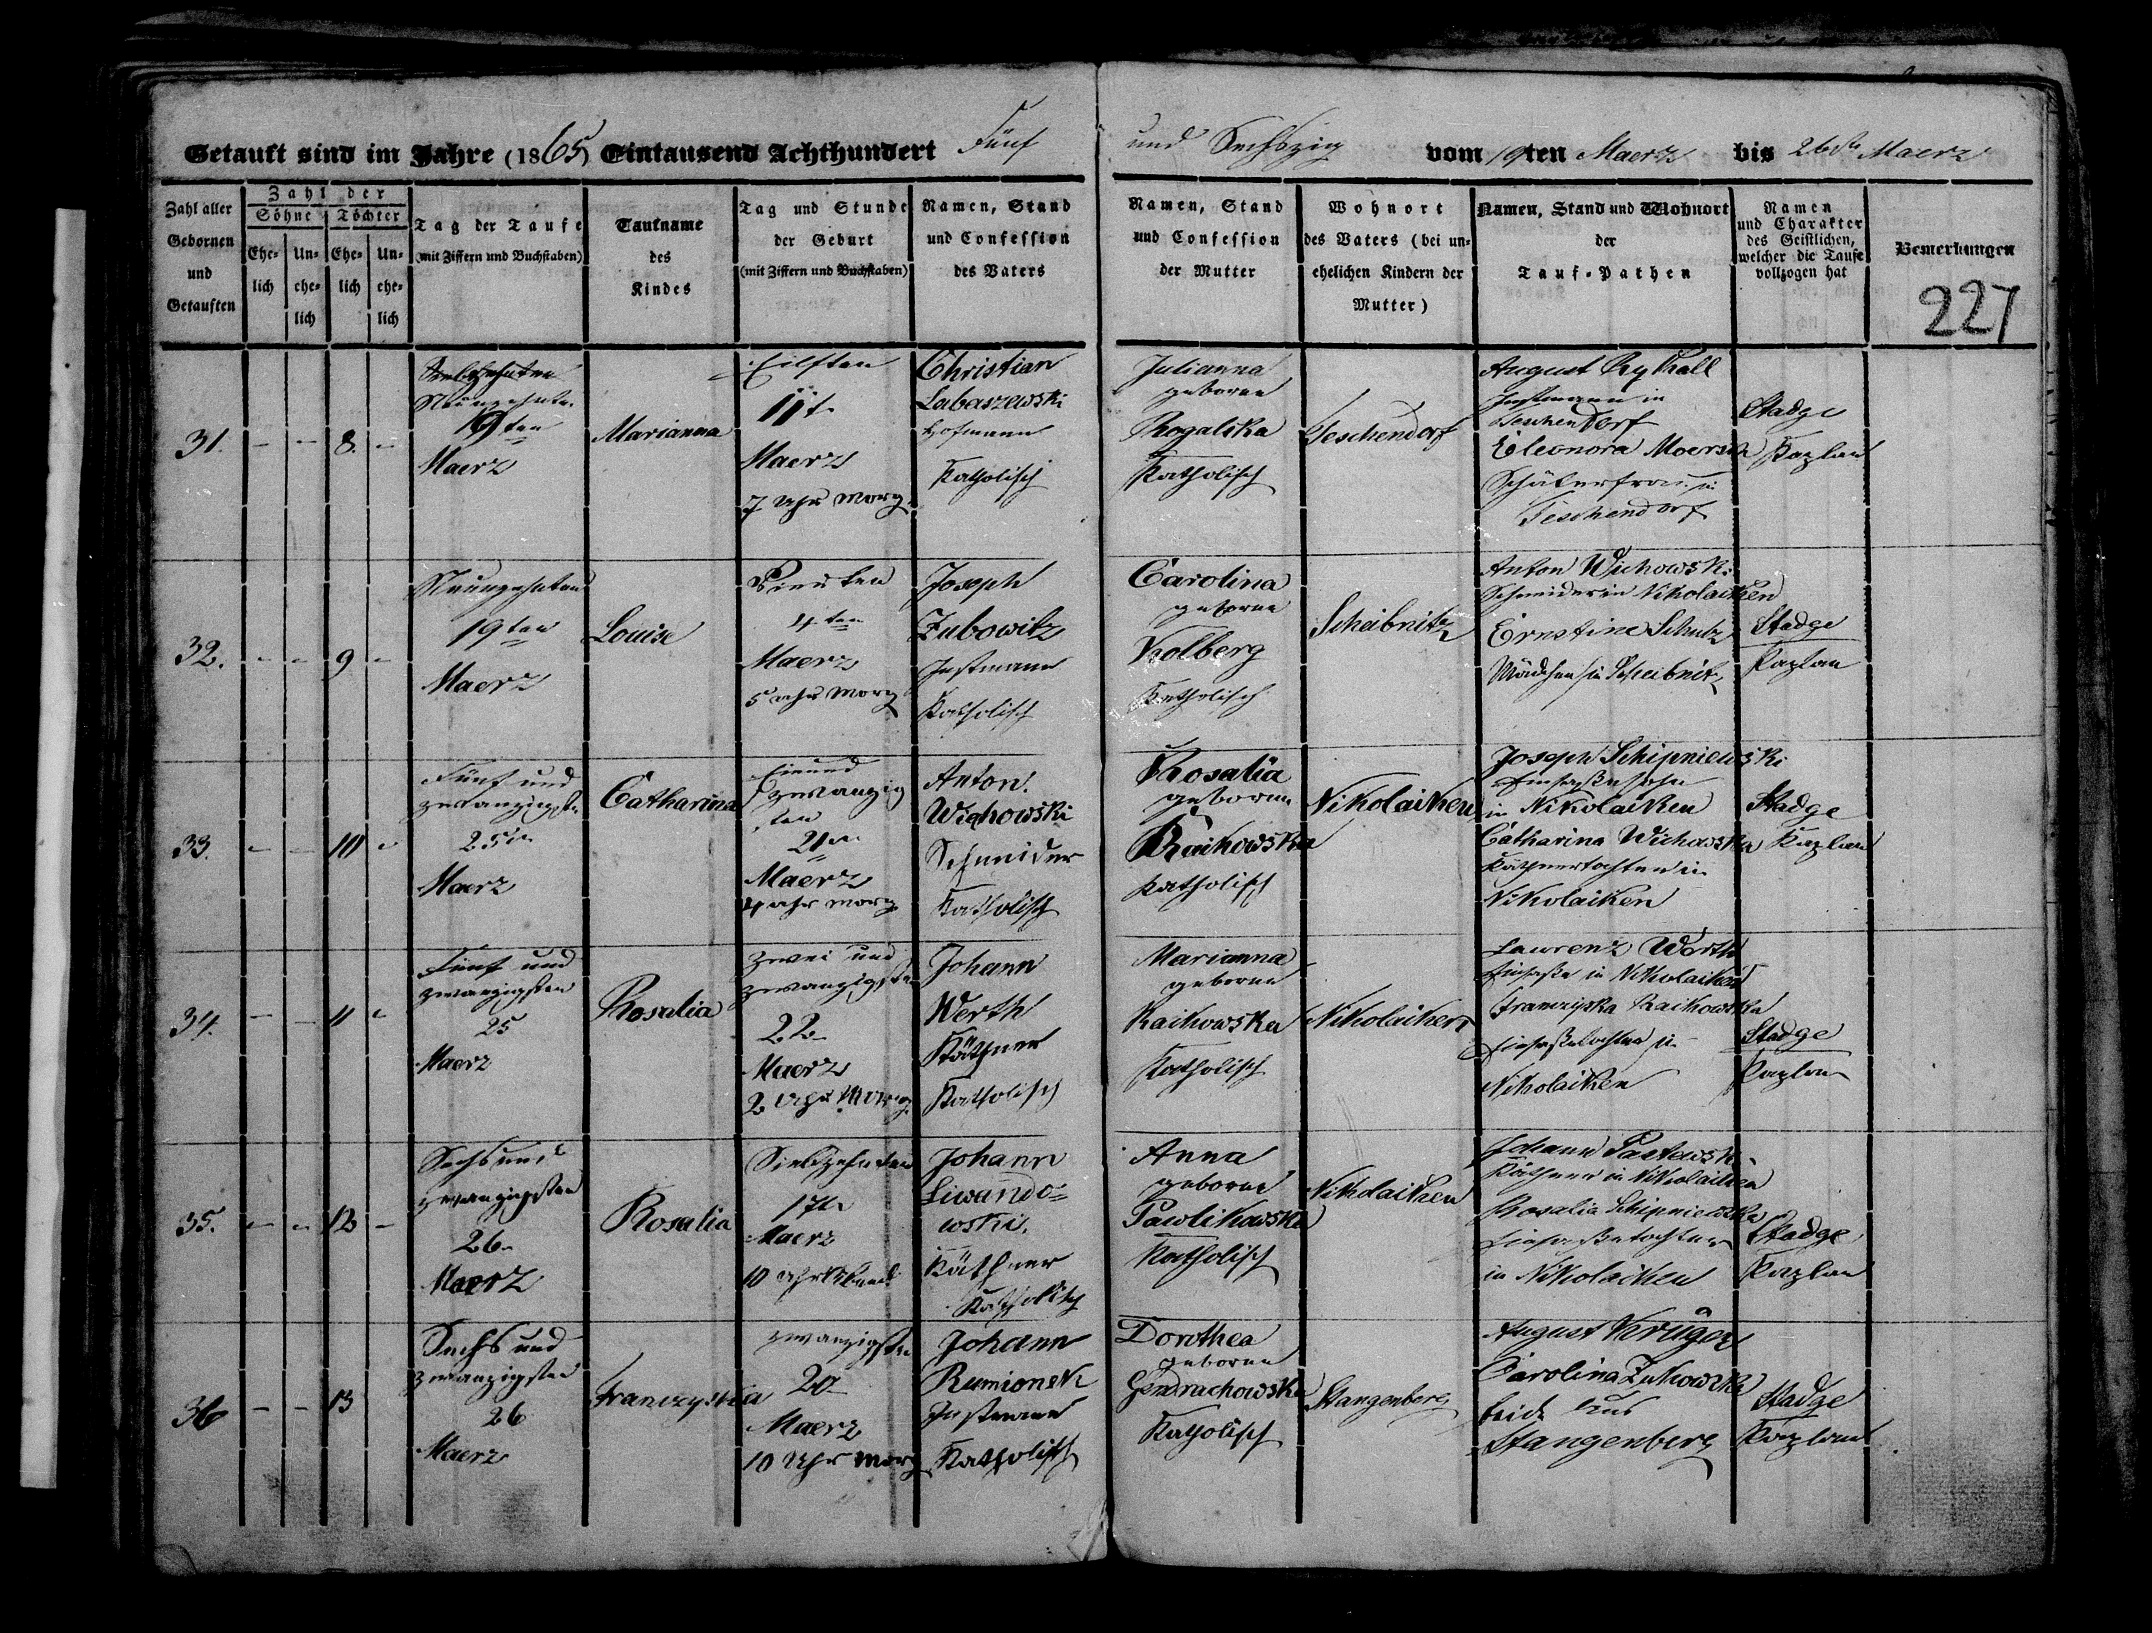 Getauft sind im Jahre (1865) Eintausend Achthundert Fünf und Sechszig vom 19ten Maerz bis 26te Maerz
Zahl aller
Gebornen
und
Getauften
Zahl der
Söhne
Töchter
Ehe-
lich
Un-
ehe-
lich
Ehe-
lich
Un-
ehe-
lich
Tag der Taufe
(mit Ziffern und Buchstaben)
Taufname
des
Kindes
Tag und Stunde
der Geburt
(mit Ziffern und Buchstaben)
Namen, Stand
und Confession
des Vaters
Namen, Stand
und Confession
der Mutter
Wohnort
des Vaters (bei un-
ehelichen Kindern der
Mutter)
Namen, Stand und Wohnort
der
Tauf-Pathen
Namen
und Charakter
des Geistlichen,
welcher die Taufe
vollzogen hat
Bemerkungen
227
31.
- - 8. -
Siebzehnten
Neunzehnten
19ten
Maerz
Marianna
Eilften
11t
Maerz
7 Uhr Morg
Christian
Labaszewski
Hofmann
Katholisch
Julianna
geborne
Rogalska
Katholisch
Teschendorf
August Rykall
Instmann in
Teschendorf
Eleonora Moersch
Schäferfrau in
Teschendorf
Stadge
Kaplan
32.
- - 9 -
Neunzehnten
19ten
Maerz
Louise
Vierten
4ten
Maerz
5 Uhr Morg
Joseph
Zubowitz
Instmann
Katholisch
Carolina
geborne
Kolberg
Katholisch
Scheibnitz
Anton Wichowski
Schneider in Nikolaiken
Ernstine Schulz
Mädchen in Scheibnitz
Stadge
Kaplan
33.
- - 10 -
Fünf und
zwanzigsten
25ten
Maerz
Catharina
Einund
zwanzig
sten
21ten
Maerz
4 Uhr Morg
Anton
Wichowski
Schneider
Katholisch
Rosalia
geborne
Raikowska
Katholisch
Nikolaiken
Joseph Schipniewski
Einsaßensohn
in Nikolaiken
Catharina Wichowska
Käthnertochter in
Nikolaiken
Stadge
Kaplan
34.
- - 11 -
Fünf und
zwanzigsten
25
Maerz
Rosalia
Zwei und
zwanzigsten
22
Maerz
2 Uhr Morg
Johann
Werth
Käthner
Katholisch
Marianna
geborne
Raikowska
Katholisch
Nikolaiken
Lawrenz Werth
Einsaße in Nikolaiken
Franzyska Raikowska
Einsaßetochter in
Nikolaiken
Stadge
Kaplan
35.
- - 12 -
Sechs und
zwanzigsten
26
Maerz
Rosalia
Siebzehnten
17ten
Maerz
10 Uhr Abend
Johann
Liwando=
wski
Käthner
Katholisch
Anna
geborne
Pawlikowska
Katholisch
Nikolaiken
Johann Pastewski
Käthner in Nikolaiken
Rosalia Schipniewska
Einsaßetochter
in Nikolaiken
Stadge
Kaplan
36
- - 13
Sechs und
zwanzigsten
26
Maerz
Franczyska
zwanzigsten
20
Maerz
10 Uhr Morg
Johann
Rumionek
Instmann
Katholisch
Dorothea
geborne
Katholisch
Stangenberg
August Krüger
Carolina Zukowska
beide aus
Stangenberg
Stadge
Kaplan